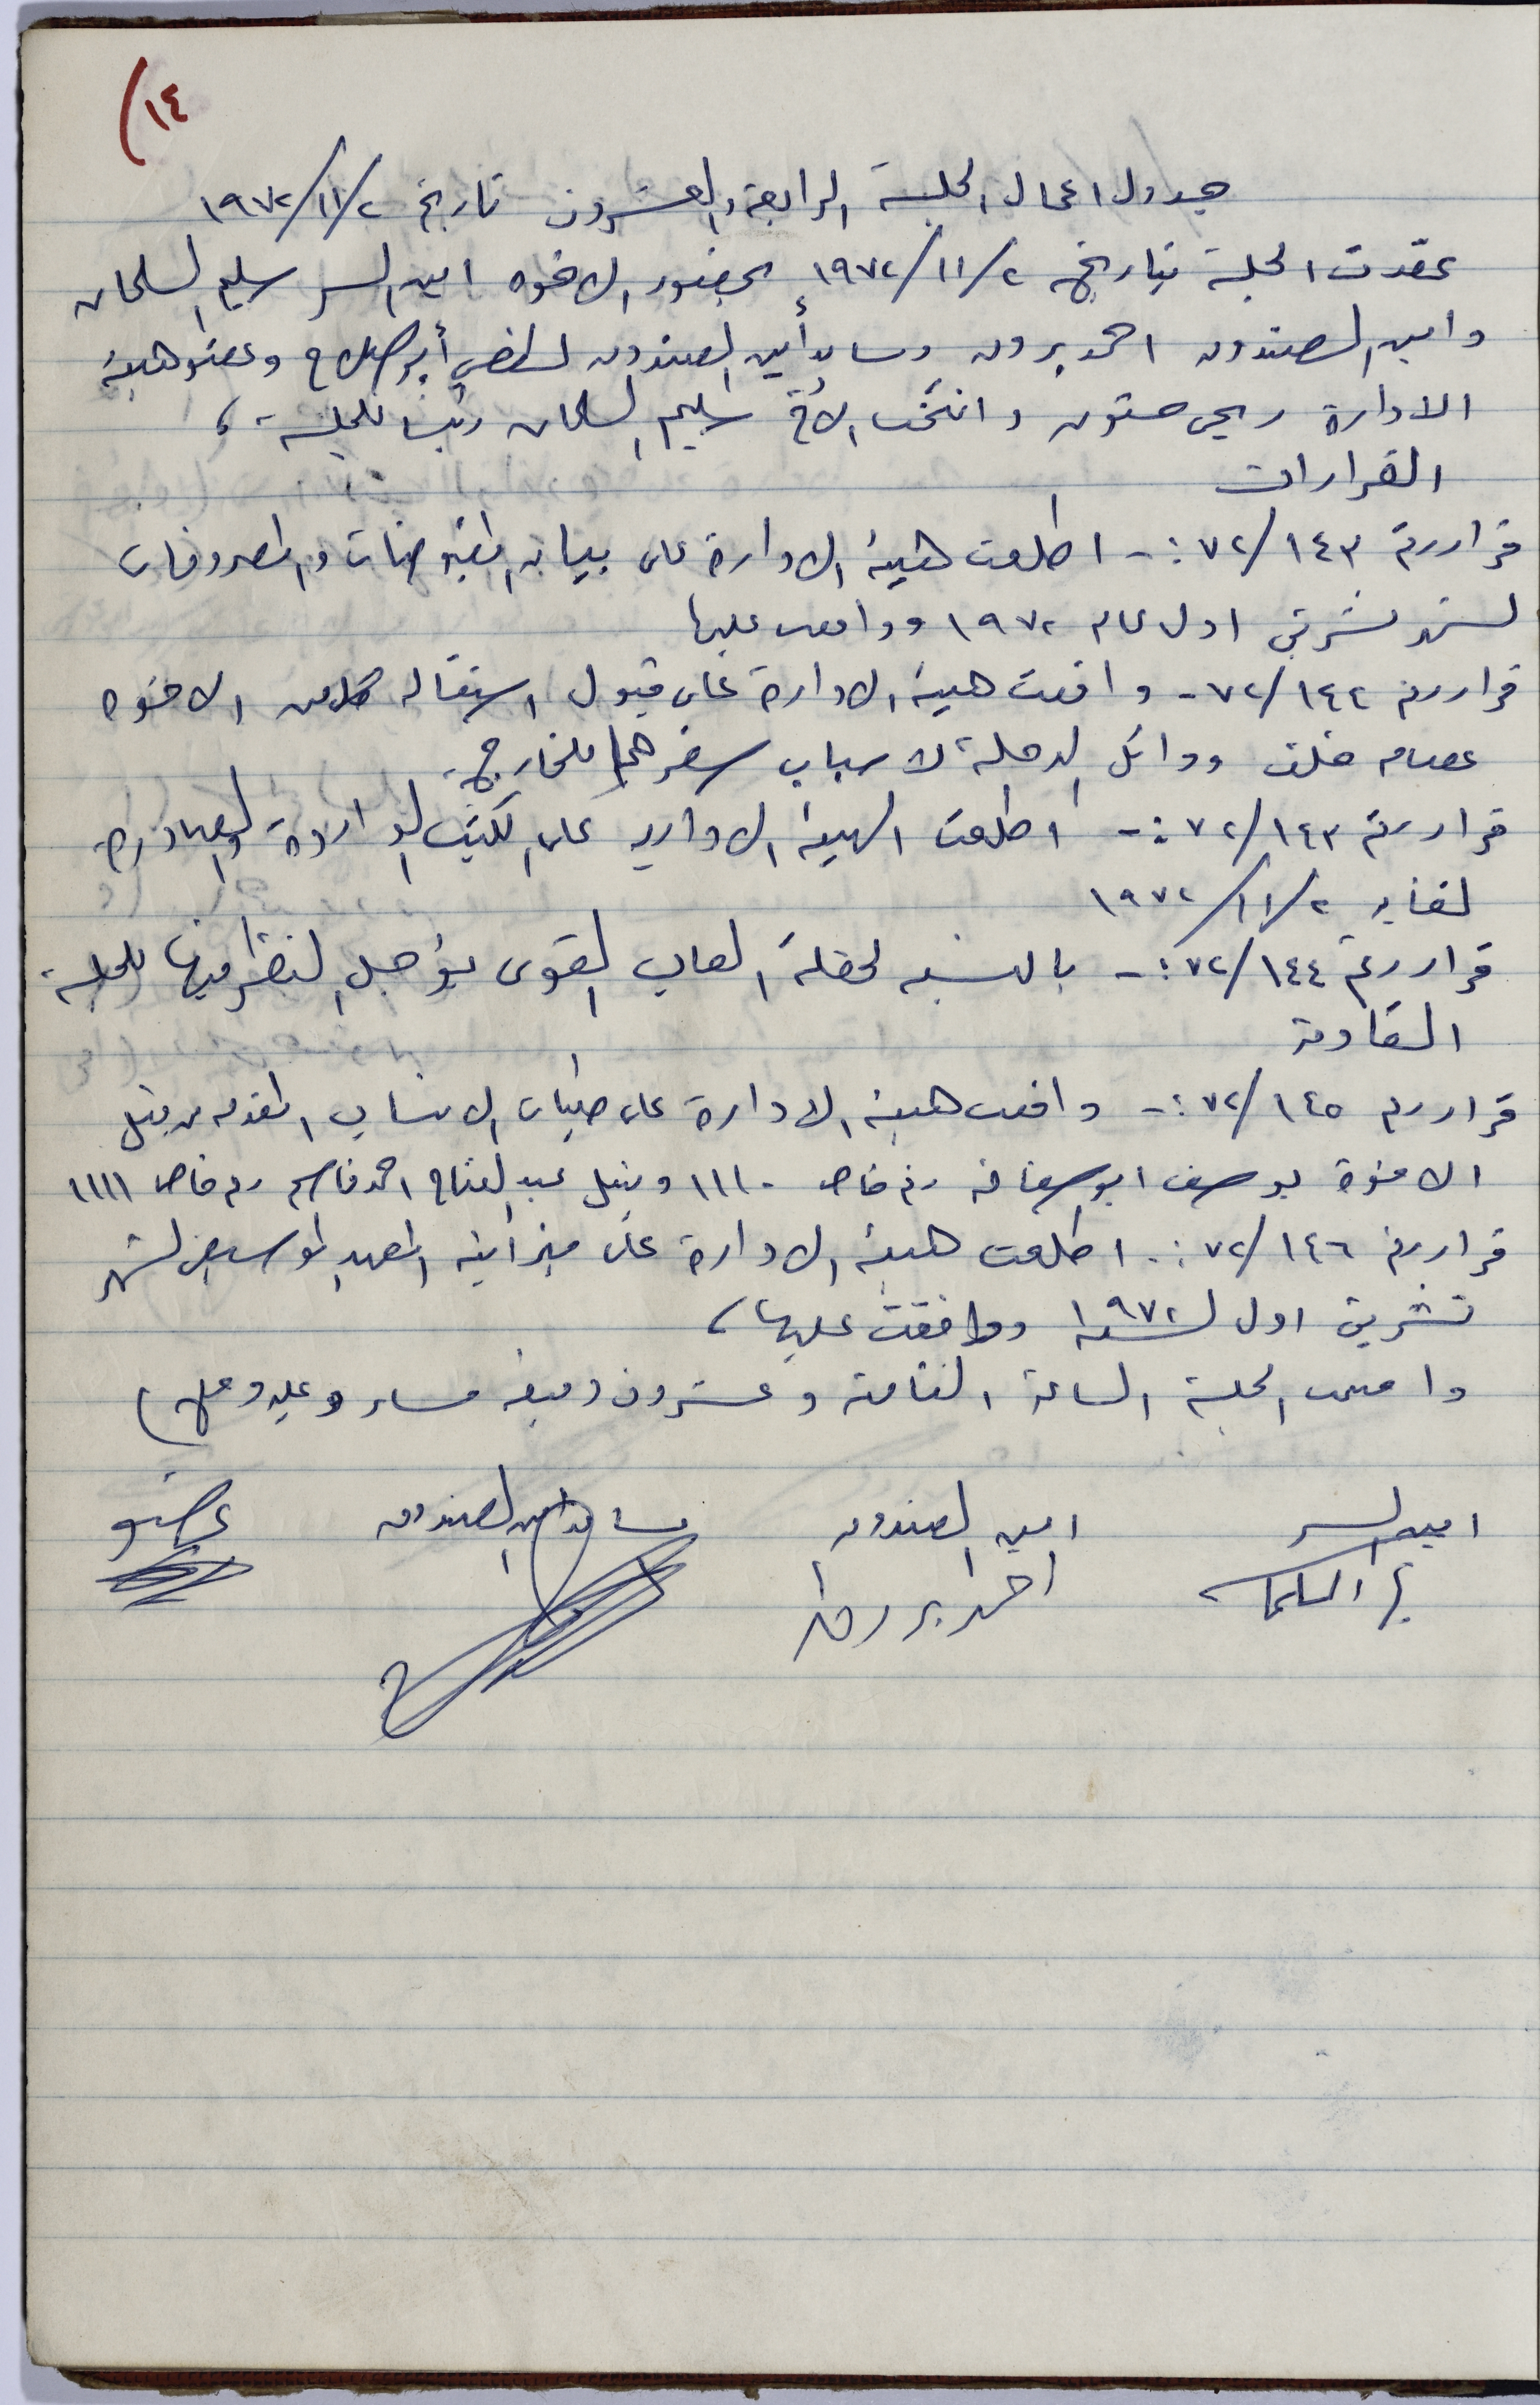 ١٤)
جدول اعمال الجلسة الرابعة والعشرون تاريخ ٢/١١/١٩٧٢
عقدت الجلسة بتاريخ ٢/١١/١٩٧٢ بحضور الاخوه امين السر سليم السلمان
وامين الصندوق احمد بردن وساعد أمين الصندوق لطفي أبو صلاح وعضو هيئة
الادارة ربحي وانتخب الأخ سليم السلمان رئيسا للجلسة ،
القرارات
قرار رقم ١٤٣/٧٢ :- اطلعت هيئة الادارة على بيان المقبوضات والمصروفات
لشهر تشرين اول عام ١٩٧٢ ووافقت عليها
قرار رقم ١٤٢/٧٢ - وافقت هيئة الادارة على قبول استقالة كل من الاخوه
عصام خلف ووائل الدحلة لاسباب سفرهما للخارج -
قرار رقم ١٤٣/٧٢ :- اطلعت الهيئة الادارية على الكتب الواردة والصادرة
لغاية ٢/١١/١٩٧٢
قرار رقم ١٤٤/٧٢ :- بالنسبه لحفلة العاب القوى يؤجل النظر فيها للجلسة
القادمة
قرار رقم ١٤٥/٧٢ :- وافقت هيئة الادارة على طلبات الانتساب المقدمه من قبل
الاخوة يوسف ابو سفاقه رقم خاص ١١١٠ ونبيل عبد الفتاح احمد قاسم رقم خاص ١١١١
قرار رقم ١٤٦/٧٢ :- اطلعت هيئة الادارة على ميزانية المعهد الموسيقي لشهر
تشرين اول لسنة ١٩٧٢ ووافقت عليها ،
واختتمت الجلسة الساعة الثامنة وعشرون دقيقة مساء وعليه وقع )
امين السر امين الصندوق مساعد امين الصندوق عضو
السلمان احمد بردن